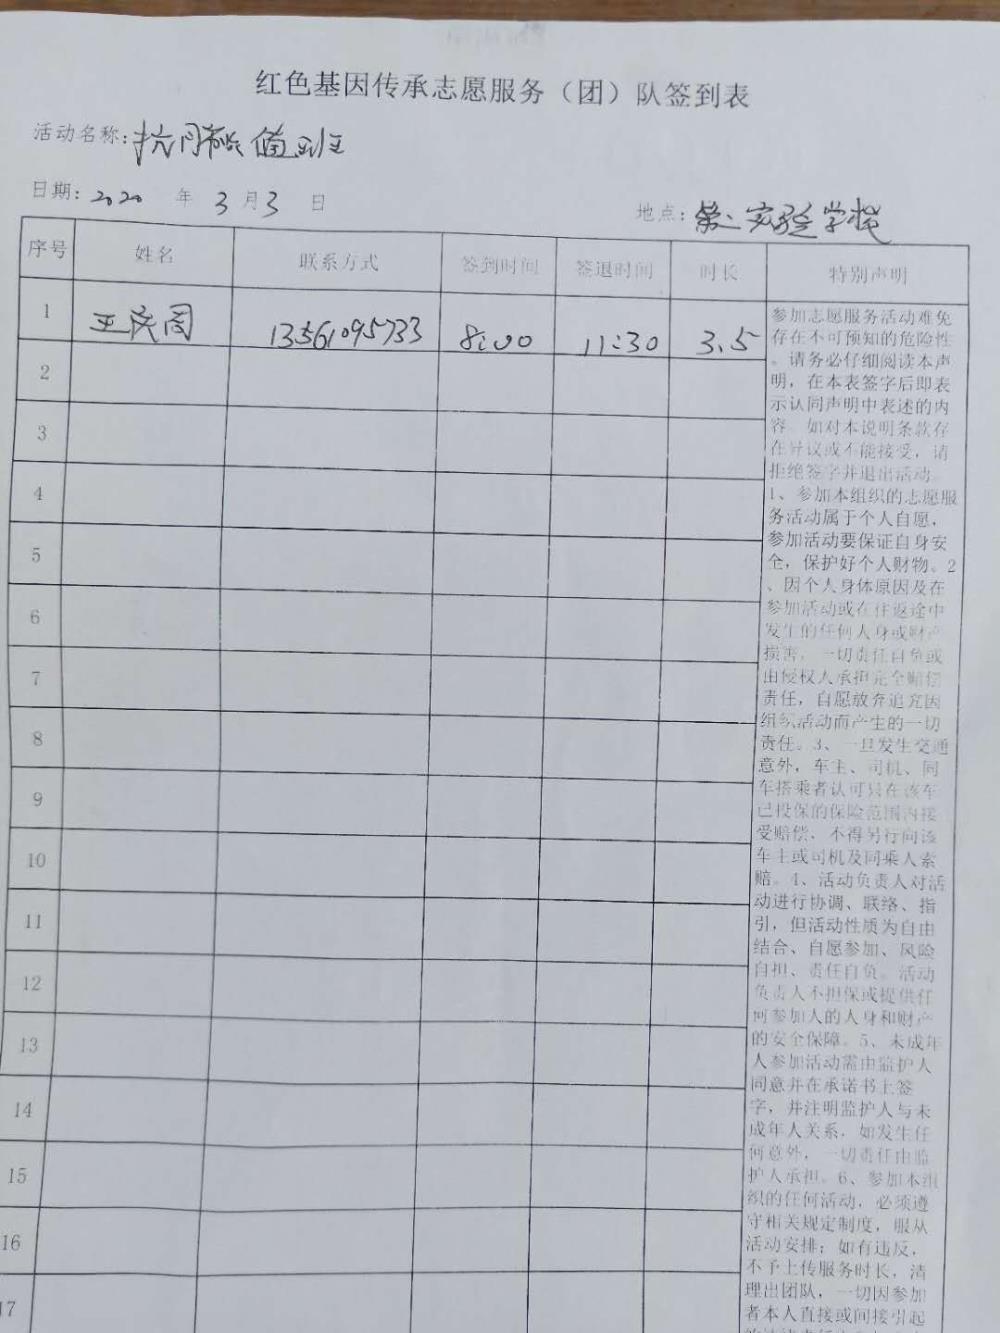 红色基因传承志愿服务（团）队签到表
活动名称：抗 值班
日期：2020 年 3 月 3 日
地点：第二实验学校
序号 姓名 联系方式 签到时间 签退时间 时长 特别声明
1 王庆阁 13561095733 8:00 11:30 3.5
2
3
4
5
6
7
8
9
10
11
12
13
14
15
16
17
参加志愿服务活动难免
存在不可预知的危险性
。请务必仔细阅读本声
明，在本表签字后即表
示认同声明中表述的内
容。如对本说明条款存
在异议或不能接受，请
拒绝签字并退出活动。
1、参加本组织的志愿服
务活动属于个人自愿，
参加活动要保证自身安
全，保护好个人财物。2
、因个人身体原因及在
参加活动或在往返途中
发生的任何人身或财产
损害，一切责任自负或
由侵权人承担完全赔偿
责任，自愿放弃追究因
组织活动而产生的一切
责任。3、一旦发生交通
意外，车主、司机、同
车搭乘者认可只在该车
已投保的保险范围内接
受赔偿，不得另行向该
车主或司机及同乘人索
赔。4、活动负责人对活
动进行协调、联络、指
引，但活动性质为自由
结合、自愿参加、风险
自担、责任自负。活动
负责人不担保或提供任
何参加人的人身和财产
的安全保障。5、未成年
人参加活动需由监护人
同意并在承诺书上签
字，并注明监护人与未
成年人关系，如发生任
何意外，一切责任由监
护人承担。6、参加本组
织的任何活动，必须遵
守相关规定制度，服从
活动安排；如有违反，
不予上传服务时长，清
理出团队，一切因参加
者本人直接或间接引起